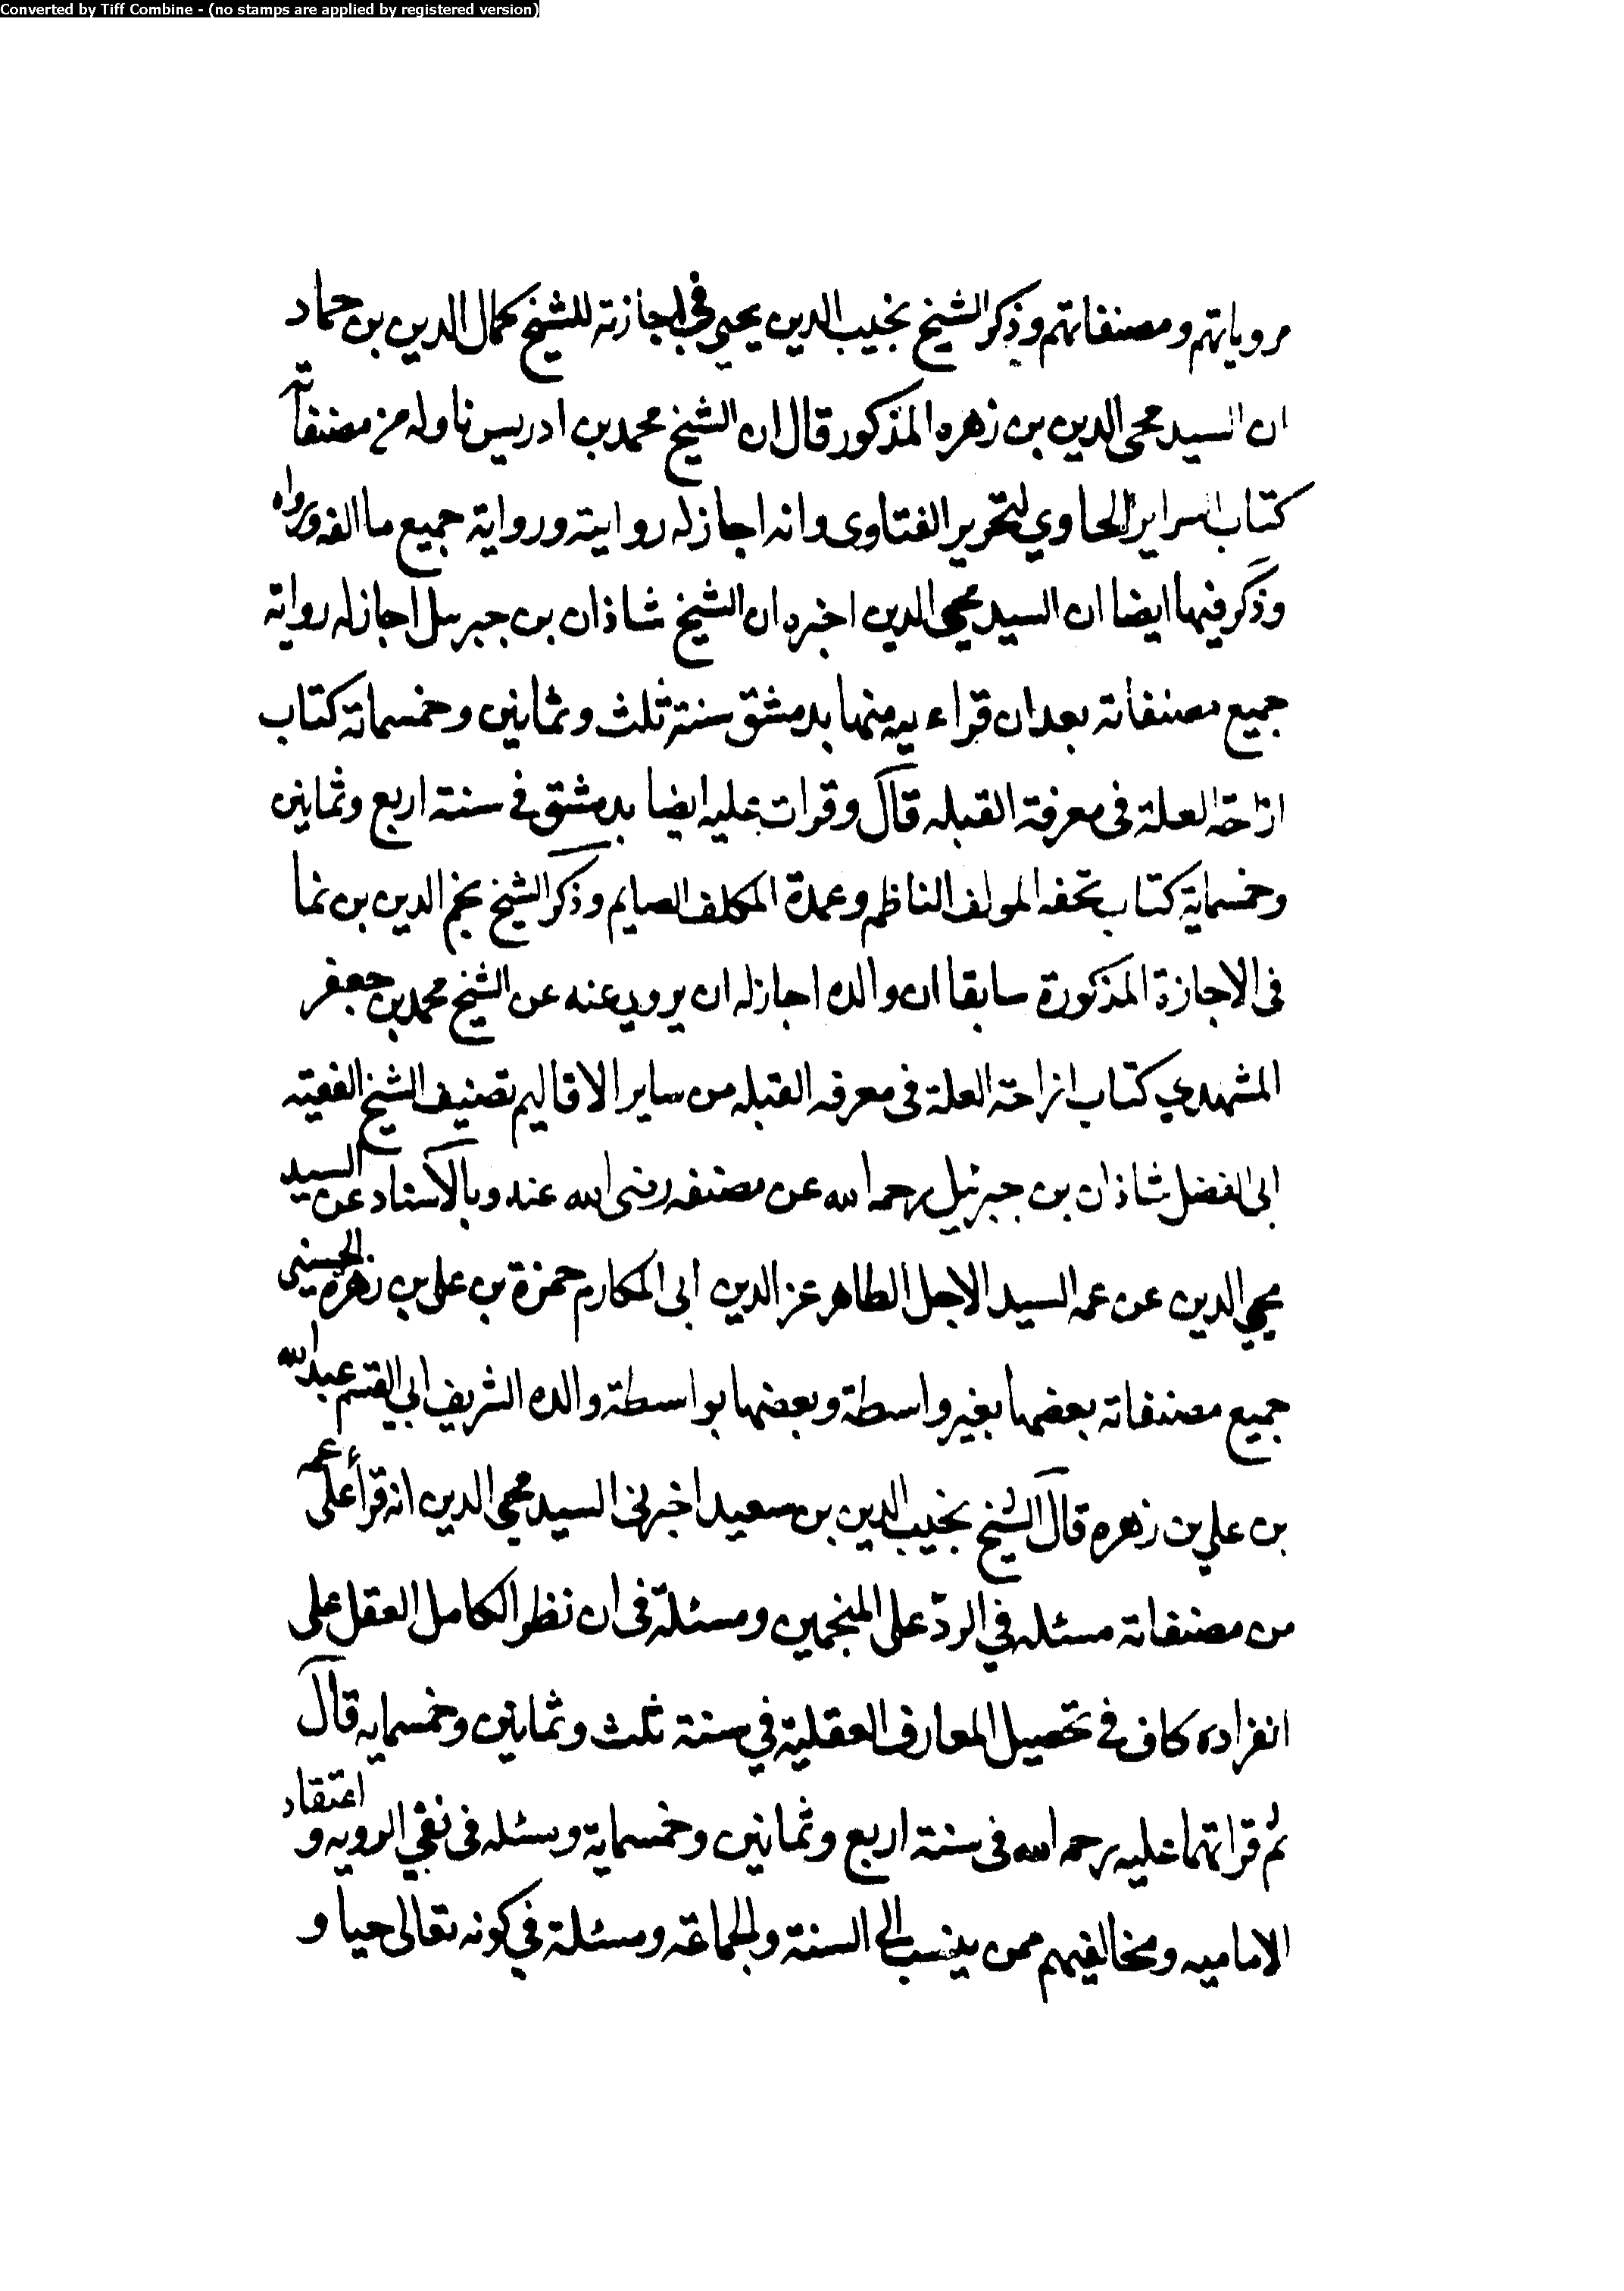 Converted by Tiff Combine - (no stamps are applied by registered version)
مروياتهم ومصنفاتهم وذكر الشيخ نجيب الدين يحيى في اجازته للشيخ كمال الدين بن حماد
ان السيد محيى الدين بن زهره المذكور قال ان الشيخ محمد بن ادريس ناوله من مصنفاته
كتاب السراير الحاوي لتحرير الفتاوى وانه اجاز له روايته ورواية جميع ما الفه ورواه
وذكر فيها ايضا ان السيد محيى الدين اخبره ان الشيخ شاذان بن جبرئيل اجاز له رواية
جميع مصنفاته بعد ان قراء عليه منها بدمشق سنة ثلث وثمانين وخمسمائة كتاب
ازاحة العلة في معرفة القبله قال وقرات عليه ايضا بدمشق في سنة اربع وثمانين
وخمسماية كتاب تحفه المولف الناظم وعمدة المكلف الصايم وذكر الشيخ نجم الدين بن نما
في الاجازة المذكورة سابقا ان والده اجاز له ان يرويه عنه عن الشيخ محمد بن جعفر
المشهدي كتاب ازاحة العلة في معرفه القبله من ساير الاقاليم تصنيف الشيخ الفقيه
ابى الفضل شاذان بن جبرئيل رحمه الله عن مصنفه رضى الله عنه وبالاسناد عن السيد
محيي الدين عن عمه السيد الاجل الطاهر عز الدين ابى المكارم حمزة بن على بن زهره الحسينى
جميع مصنفاته بعضها بغير واسطة وبعضها بواسطة والده الشريف ابي القسم عبد الله
بن علي بن زهره قال الشيخ نجيب الدين بن سعيد اخبرنى السيد محيى الدين انه قرأ على عمه
من مصنفاته مسئله في الردّ على المنجمين ومسئلة في ان نظر الكامل العقل على
انفراده كاف في تحصيل المعارف العقلية في سنة ثلث وثمانين وخمسمايه قال
ثم قراتهما عليه رحمه الله في سنة اربع وثمانين وخمسماية ومسئله في نفي الرويه واعتقاد
الاماميه ومخالفيهم ممن ينسب الى السنة والجماعة ومسئلة في كونه تعالى حيا و